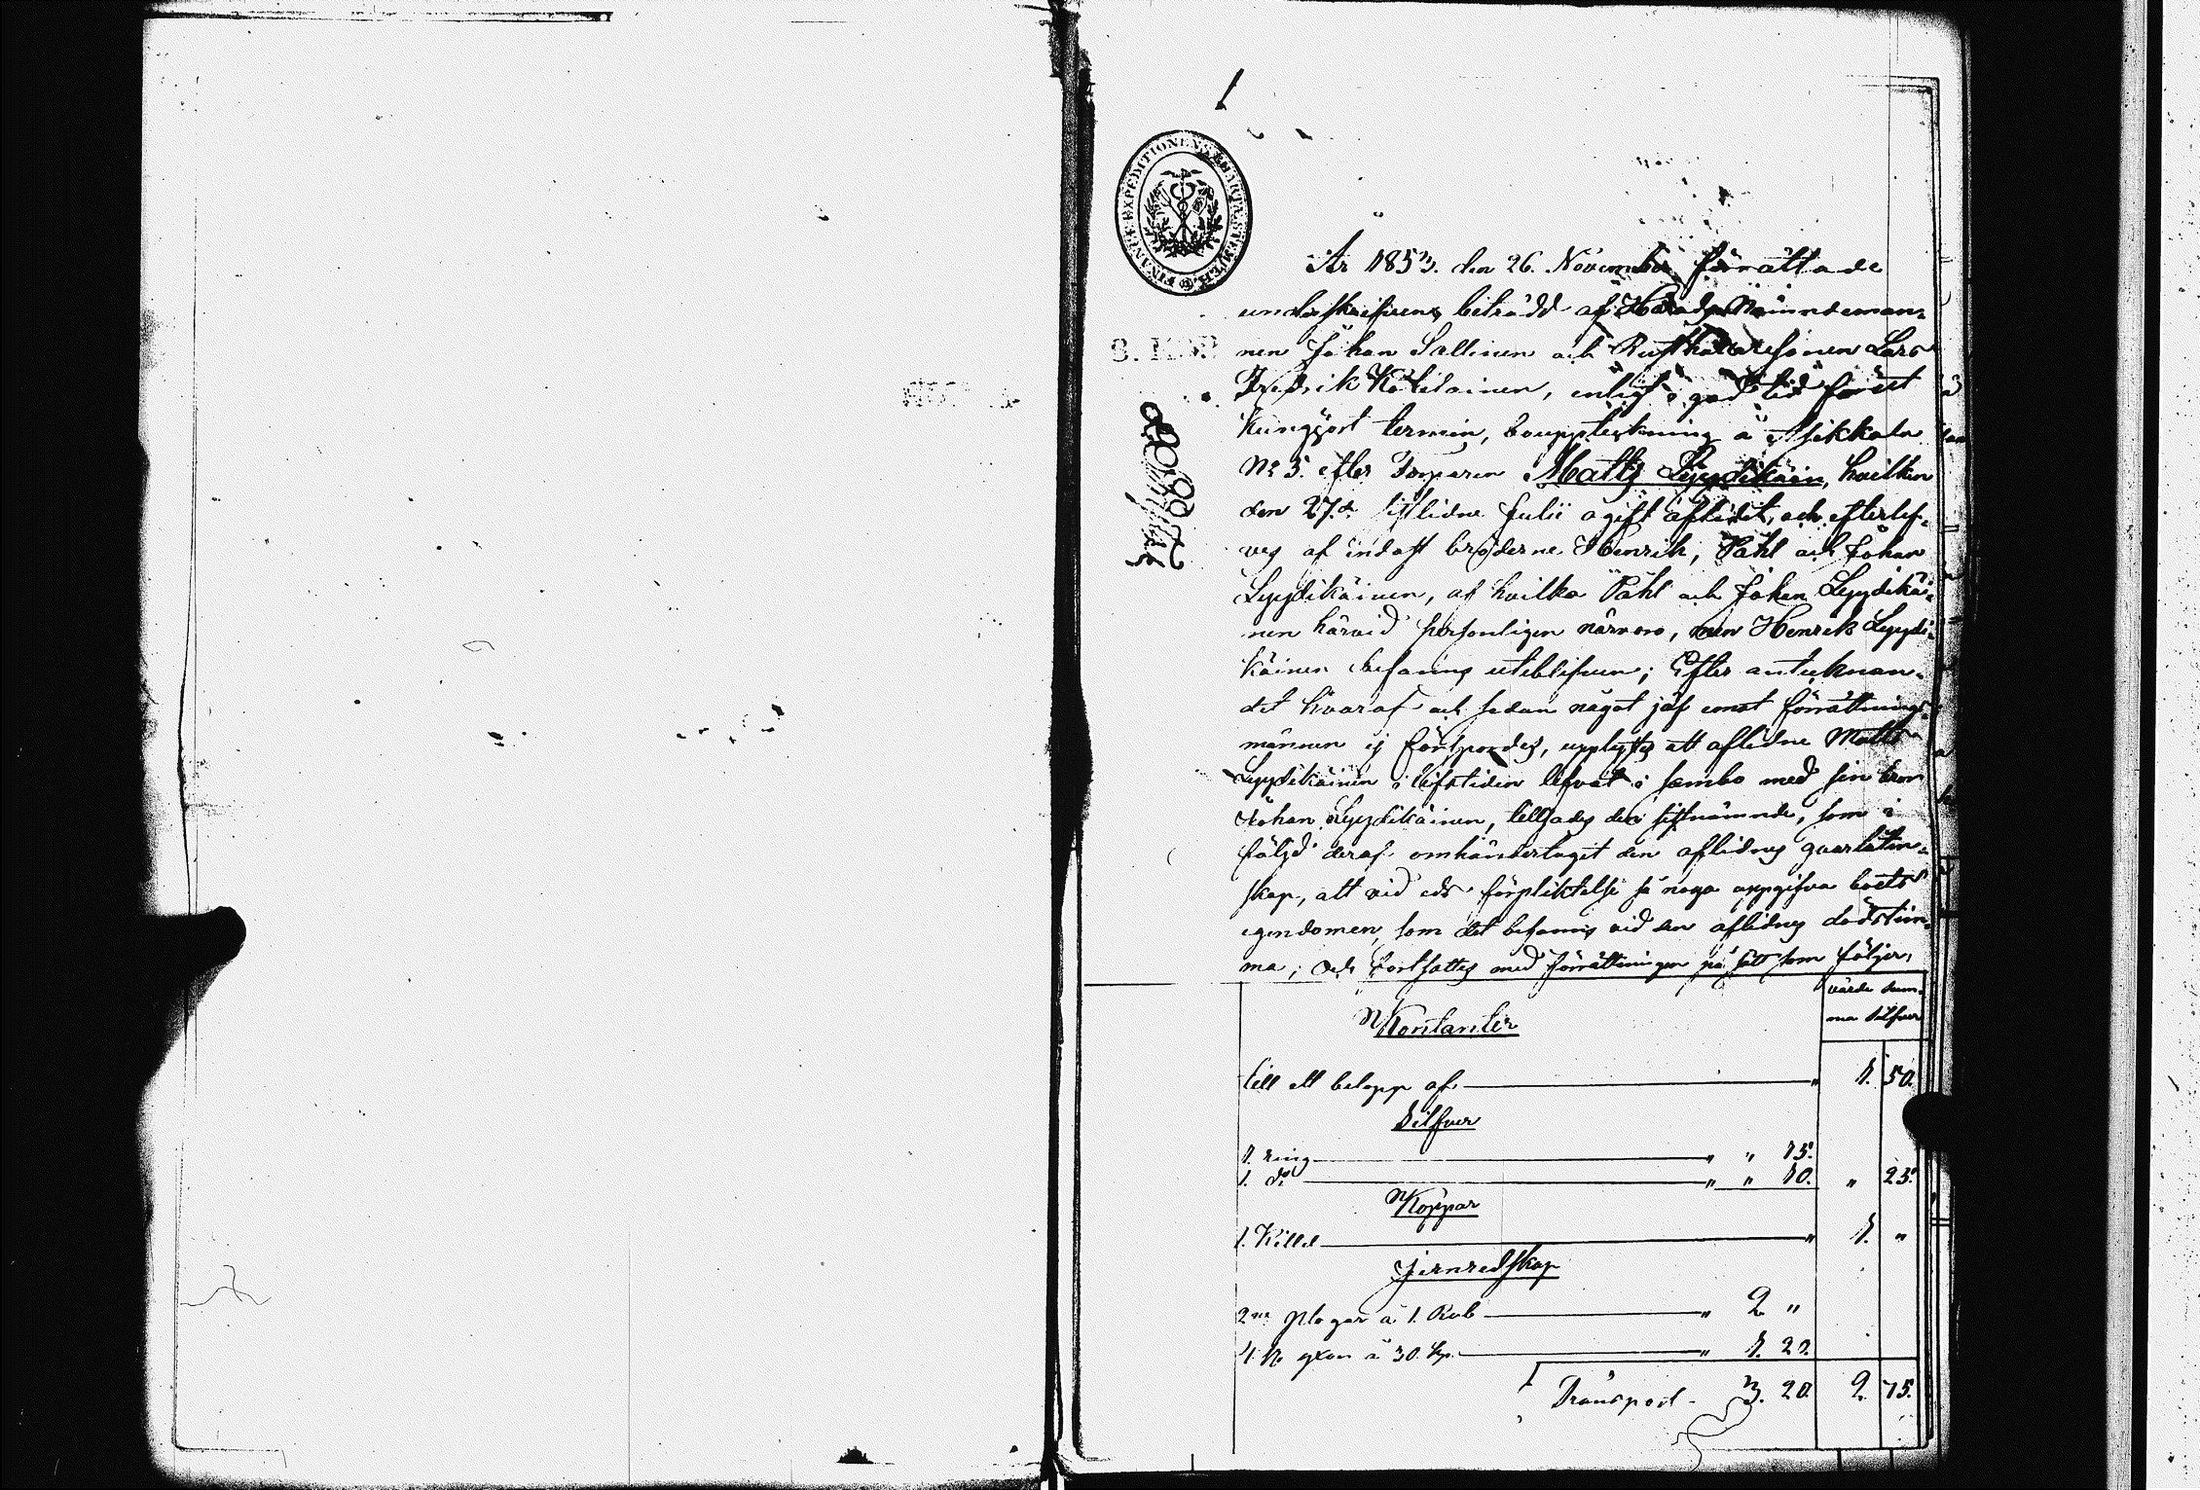 1
FINANCE EXPEDITIONENS CHARTÆ STEMPEL
År 1853. den 26. November förrättade
underskrifven, biträdd af Härads Nämndeman=
nen Johan Sallinen och Rusthållaresonen Lars
Fredrik Kokelainen, enligt i god tid förut
kungjord termin, bouppteckning å Asikkala
No 5. efter Torparen Matts Lyydikäin, hvilken
den 27.de sistlidne Julii ogift aflidit, och efterlef=
ves af endast bröderne Henrik, Påhl och Johan
Lyydikäinen, af hvilka Påhl och Johan Lyydikäi=
nen härvid personligen närvoro, men Henrik Lyydi=
käinen befanns uteblifven; Efter antecknan=
det hvaraf och sedan något jäf emot förrättnings
männen ej förspordes, upplystes att aflidne Matts
Lyydikäinen i lifstiden lefvat i sambo med sin bror
Johan Lyydikäinen, tillsades den sistnämnde, som i
följd deraf omhändertagit den aflidnes qvarlåten=
skap, att vid eds förpliktelse så noga uppgifva boets
egendomen, som det befanns vid den aflidnes dödstim=
ma; Och fortsattes med förrättningen på sätt som följer;
värde Sum=
ma Silfver
Kontanter
till ett belopp af " 1. 50.
Silfver
1. ring " " 15.
1. do " " 10. " 25.
Koppar
1. Kittel " 1. "
Jernredskap
2ne plogar à 1. Rub " 2 "
4. yxor à 30. kp. " 1. 20.
Transport 3. 20. 2. 75.